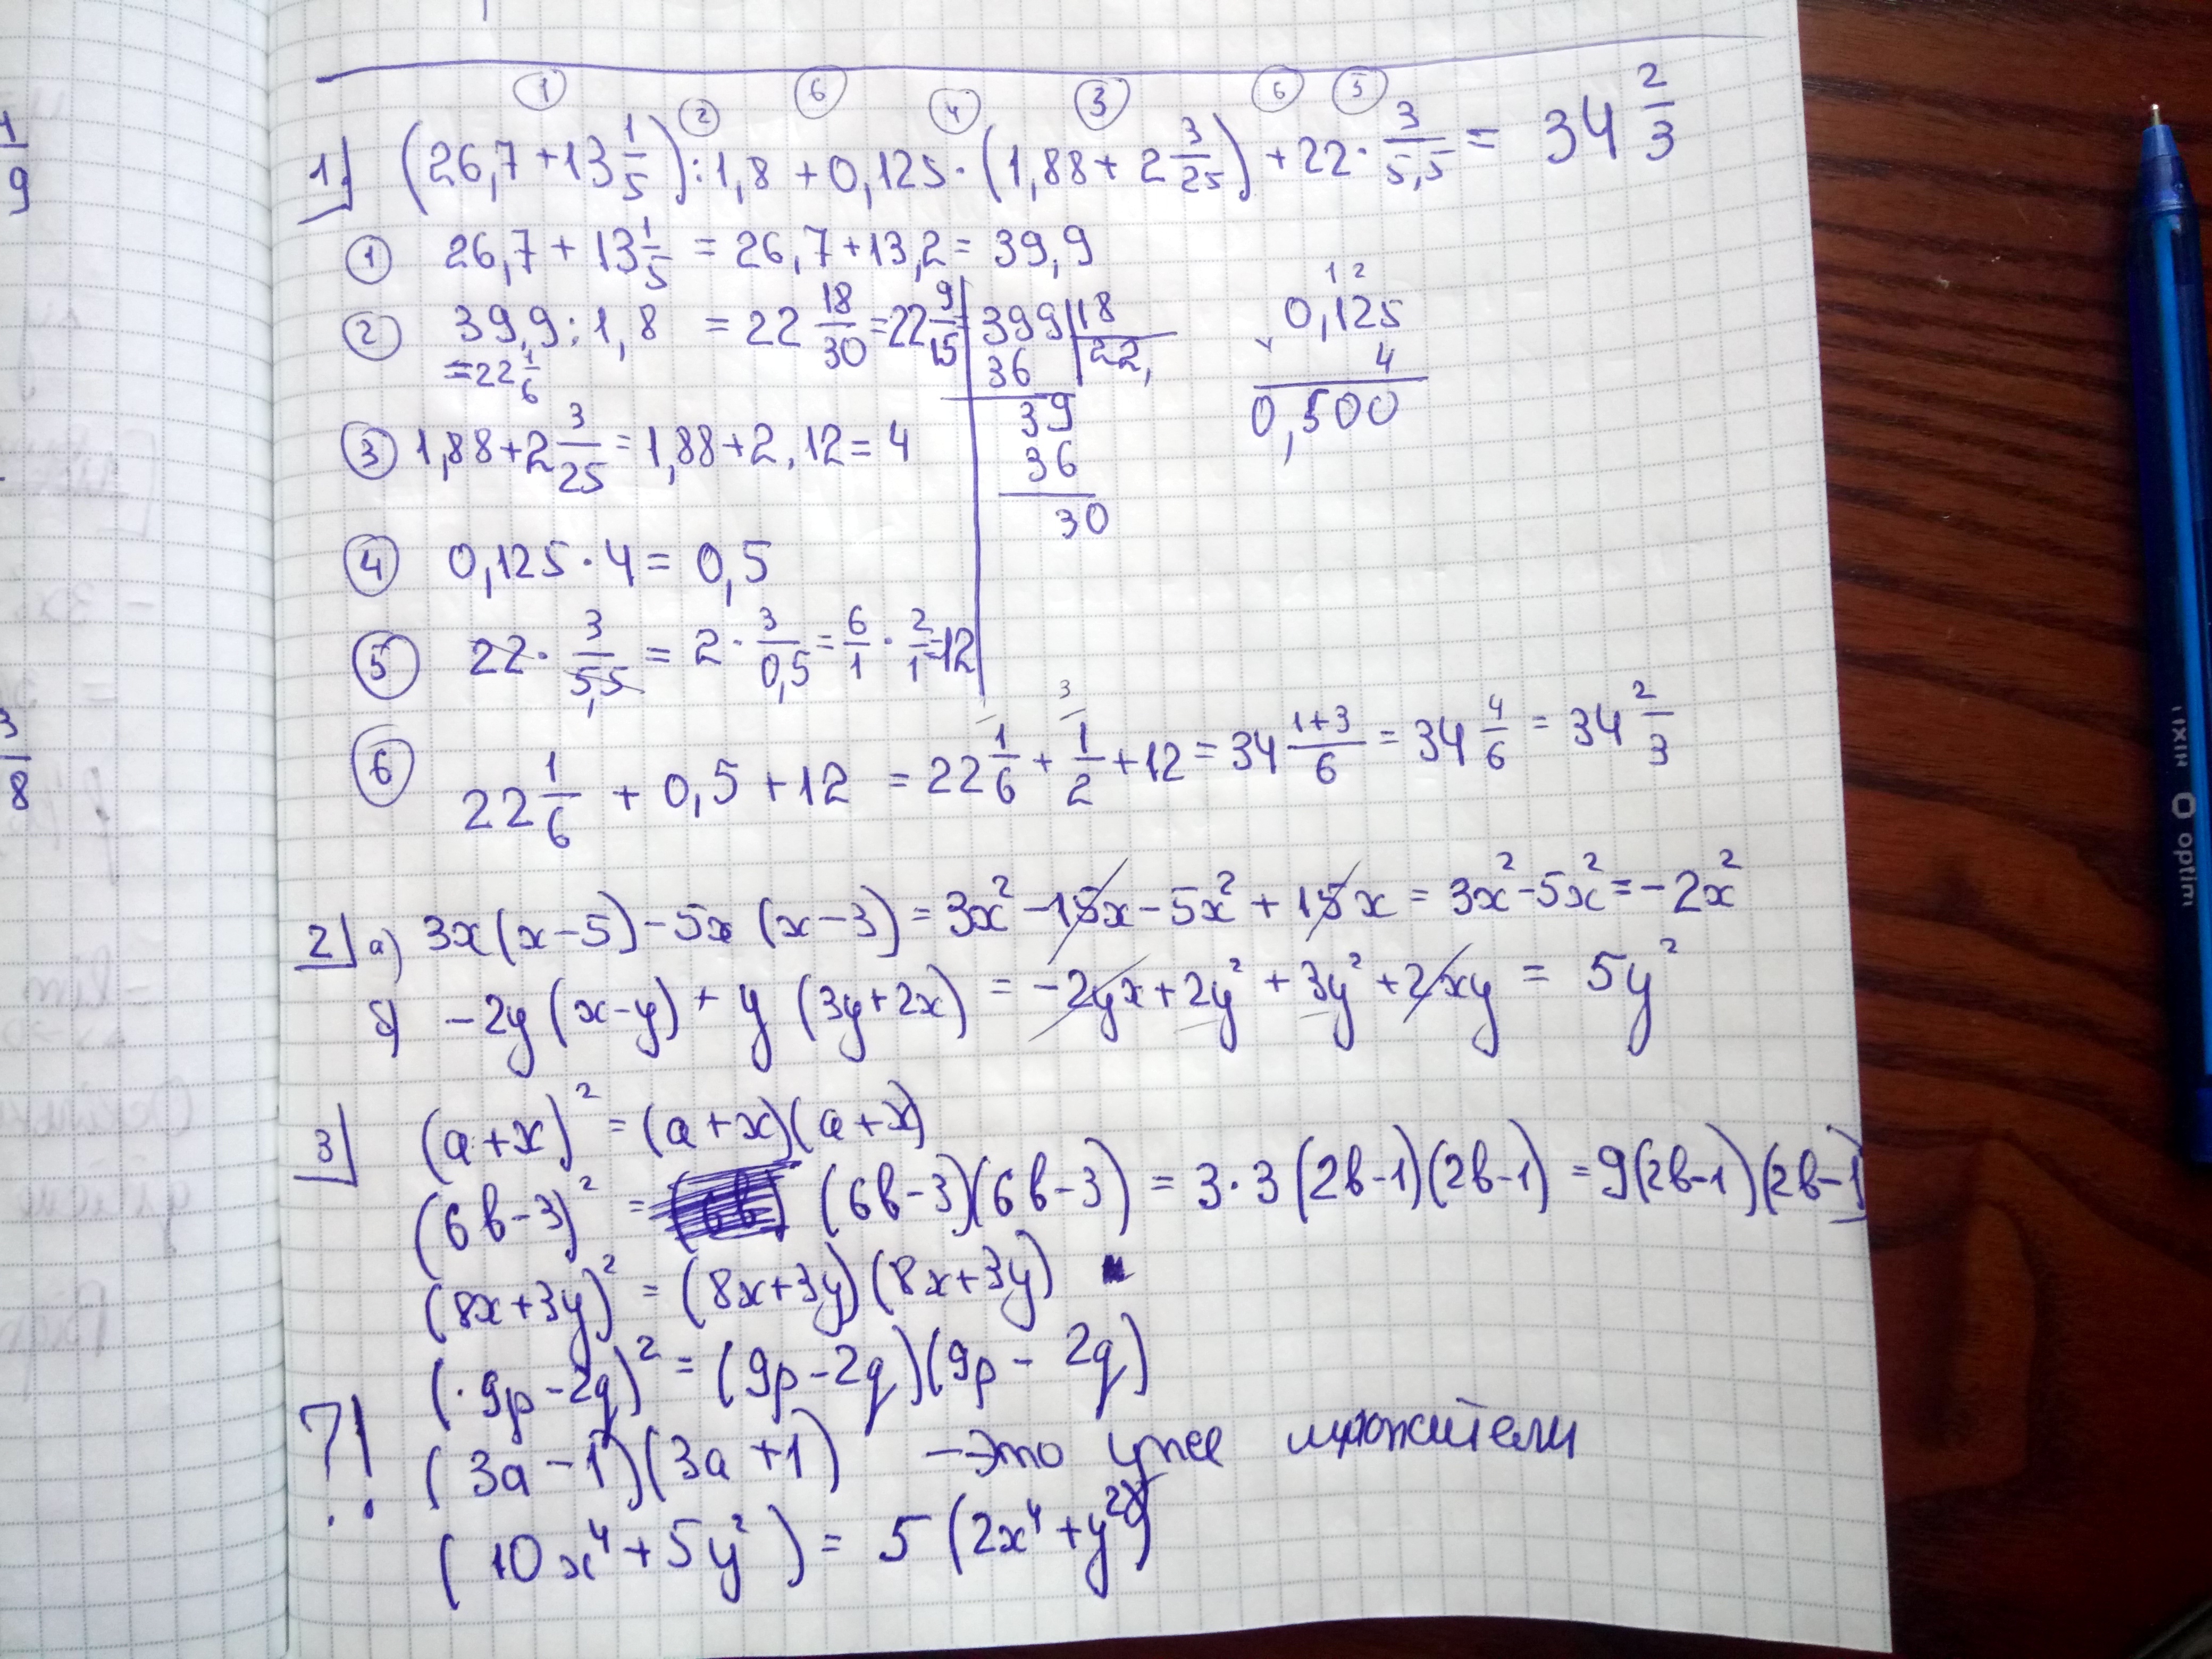 ① ② ⑥ ④ ③ ⑥ ⑤
1) (26,7 + 13 1/5) : 1,8 + 0,125 · (1,88 + 2 3/25) + 22 · 3/5,5 = 34 2/3
① 26,7 + 13 1/5 = 26,7 + 13,2 = 39,9
② 39,9 : 1,8 = 22 18/30 = 22 9/15 =
= 22 1/6
399 | 18
36 | 22,
39
36
30
1 2
0,125
× 4
0,500
③ 1,88 + 2 3/25 = 1,88 + 2,12 = 4
④ 0,125 · 4 = 0,5
⑤ 22 · 3/5,5 = 2 · 3/0,5 = 6/1 · 2/1 = 12
3
⑥ 22 1/6 + 0,5 + 12 = 22 1/6 + 1/2 + 12 = 34 1+3/6 = 34 4/6 = 34 2/3
2) а) 3x(x-5) - 5x (x-3) = 3x² - 15x - 5x² + 15x = 3x² - 5x² = -2x²
б) -2y (x-y) + y (3y+2x) = -2yx + 2y² + 3y² + 2xy = 5y²
3) (a+x)² = (a+x)(a+x)
(6b-3)² = (6b-3)(6b-3) = 3·3 (2b-1)(2b-1) = 9(2b-1)(2b-1)
(8x+3y)² = (8x+3y)(8x+3y)
(9p-2q)² = (9p-2q)(9p - 2q)
?! (3a-1)(3a+1) - Это уже множители
(10x⁴+5y²) = 5 (2x⁴+y²)
1/9
3/8
optim